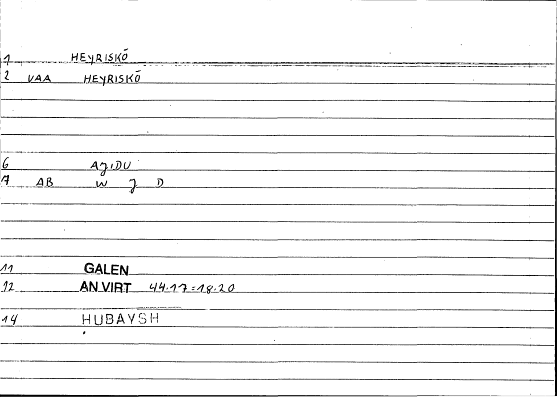 1 HEYRISKŌ
2 VAA HEYRISKŌ
6 AJIDU
7 AB W J D
11 GALEN
12 AN VIRT 44.17=18.20
14 HUBAYSH